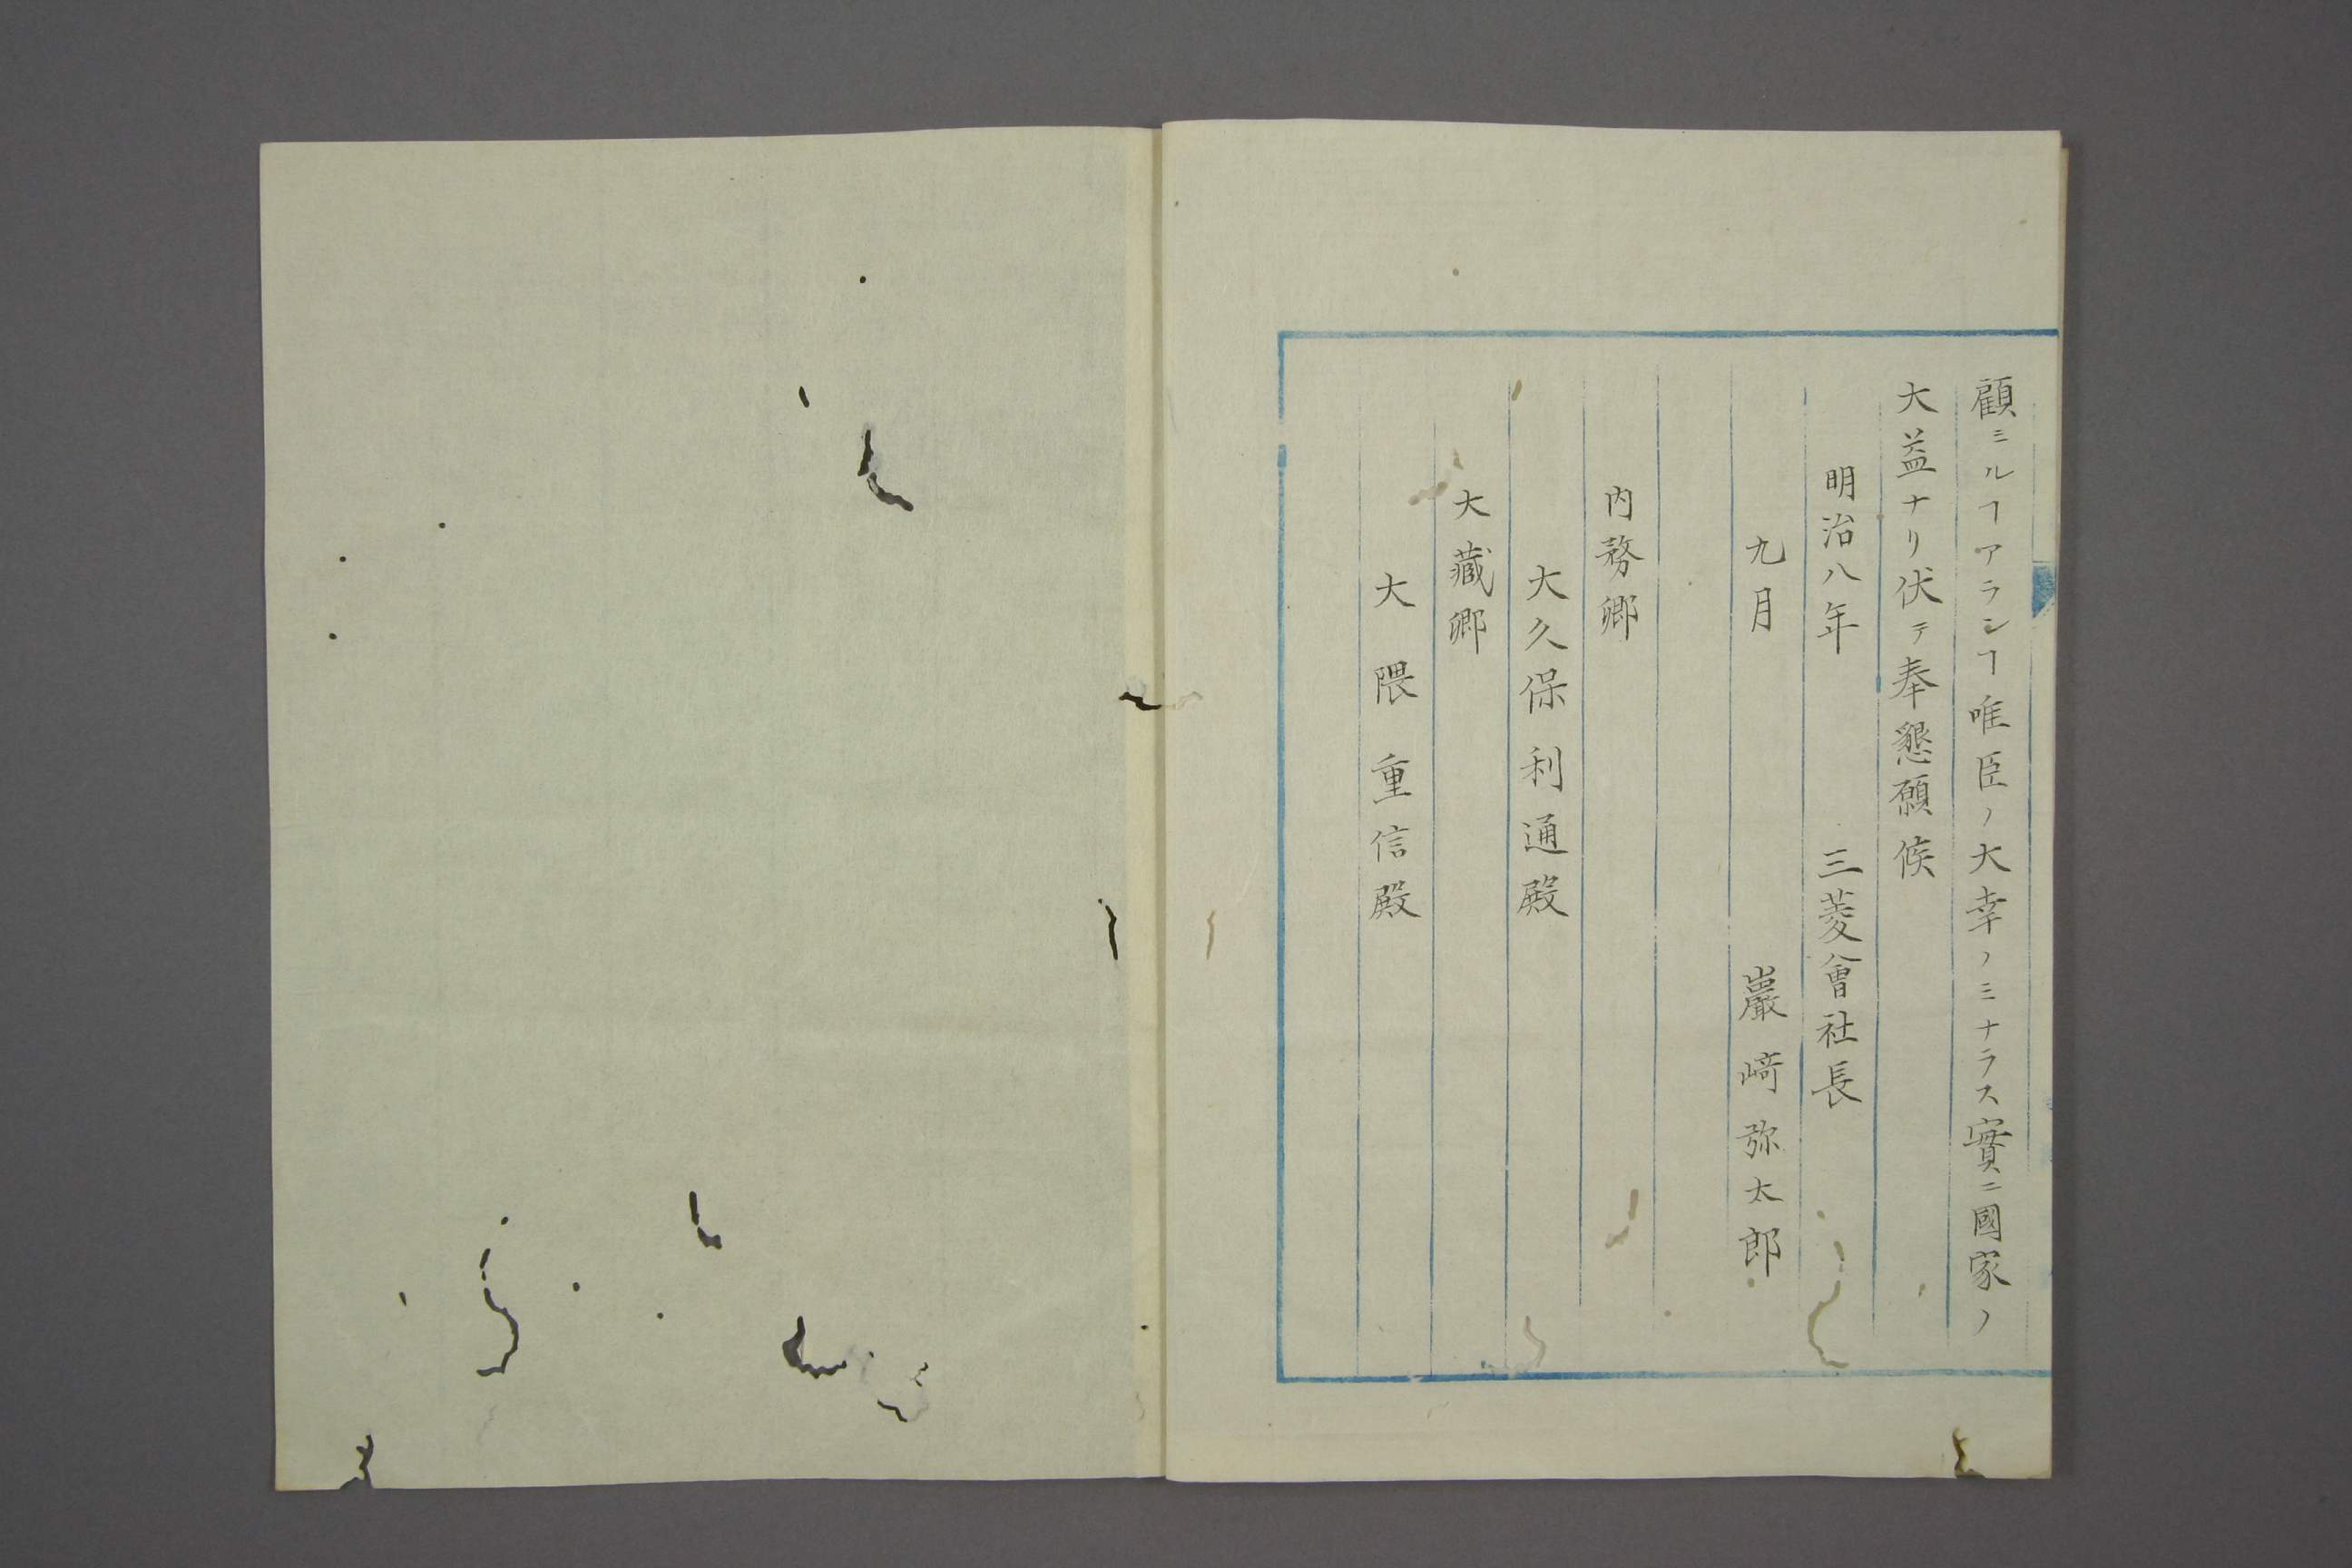 顧ミルヿアランヿ唯臣ノ大幸ノミナラス實ニ國家ノ
大益ナリ伏テ奉懇願候
明治八年　三菱會社長
九月　巖﨑弥太郎
内務卿
大久保利通殿
大藏卿
大隈重信殿